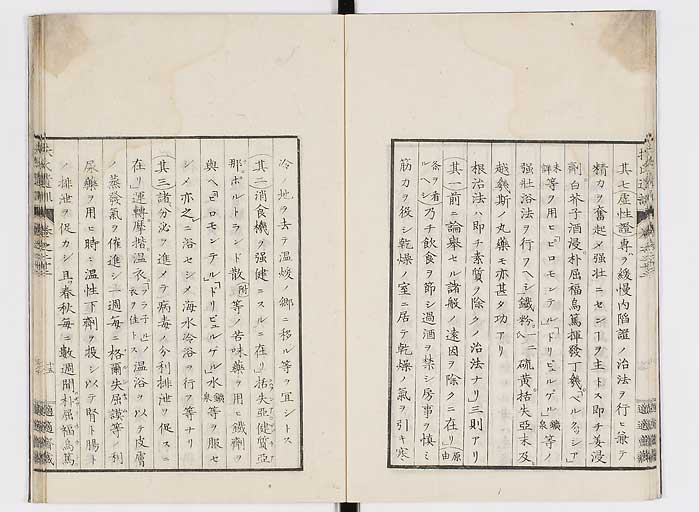 其七虚性證專ラ緩慢内陥證ノ治法ヲ行ヒ兼テ
精力ヲ奮起メ強壮ニセシムヲ主トス即チ羗浸
劑白芥子酒浸朴屈福烏篤揮發丁幾「ペルクッシア」
末鮮等ヲ用ヒ「ピロモンテル」「ドリビュルゲル」鑛泉ノ
強壮浴法ヲ行フヘシ鐵粉一二硫黄括失亞末及
越幾斯ノ丸藥モ亦甚タ功アリ
根治法ハ即チ素質ヲ除クノ治法ナリ三則アリ
其一前ニ論擧セル諸般ノ遠因ヲ除クニ在リ原由
條ヲ看ルヘシ乃チ飲食ヲ節シ過酒ヲ禁シ房事ヲ慎ミ
筋力ヲ役シ乾燥ノ室ニ居テ乾燥ノ氣ヲ引キ寒
冷ノ地ヲ去テ温暖ノ郷ニ移ル等ヲ宜シトス
其二消食機ヲ強健ニスルニ在リ括失亞健質亞
那「ポルトランド」散附等ノ苦味藥ヲ用ヒ鐵劑ヲ
與ヘ「ピロモンテル」「ドリビュルゲル」水鑛泉等ヲ服セ
シメ亦之ニ浴セシメ海水冷浴ヲ行フ等ナリ
其三諸分泌ヲ進メテ病毒ノ分利排泄ヲ促スニ
在リ運轉摩擦温衣「フラ子ル」ノ衣ヲ佳トス温浴ヲ以テ皮膚
ノ蒸發氣ヲ催進シ一週毎ニ格爾失屈謨等ノ利
尿藥ヲ用ヒ時ニ温性下劑ヲ投シ以テ腎ト腸ト
ノ排泄ヲ促カシ且春秋毎ニ數週間朴屈福烏篤